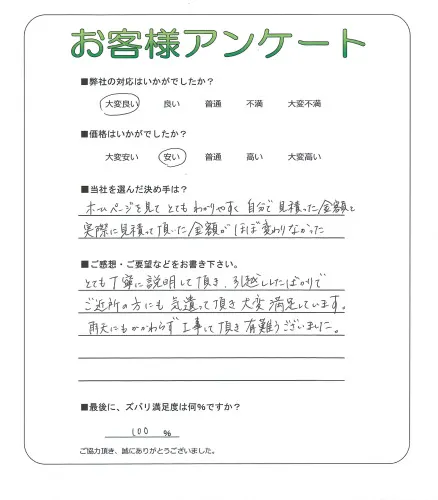 お客様アンケート
■弊社の対応はいかがでしたか？
大変良い 良い 普通 不満 大変不満
■価格はいかがでしたか？
大変安い 安い 普通 高い 大変高い
■当社を選んだ決め手は？
ホームページを見て とても わかりやすく 自分で 見積った金額と
実際に見積って頂いた金額が ほぼ変わりなかった
■ご感想・ご要望などをお書き下さい。
とても丁寧に説明して頂き、引越ししたばかりで
ご近所の方にも 気遣って頂き 大変満足しています。
雨天にもかかわらず 工事して頂き 有難うございました。
■最後に、ズバリ満足度は何%ですか？
100 %
ご協力頂き、誠にありがとうございました。